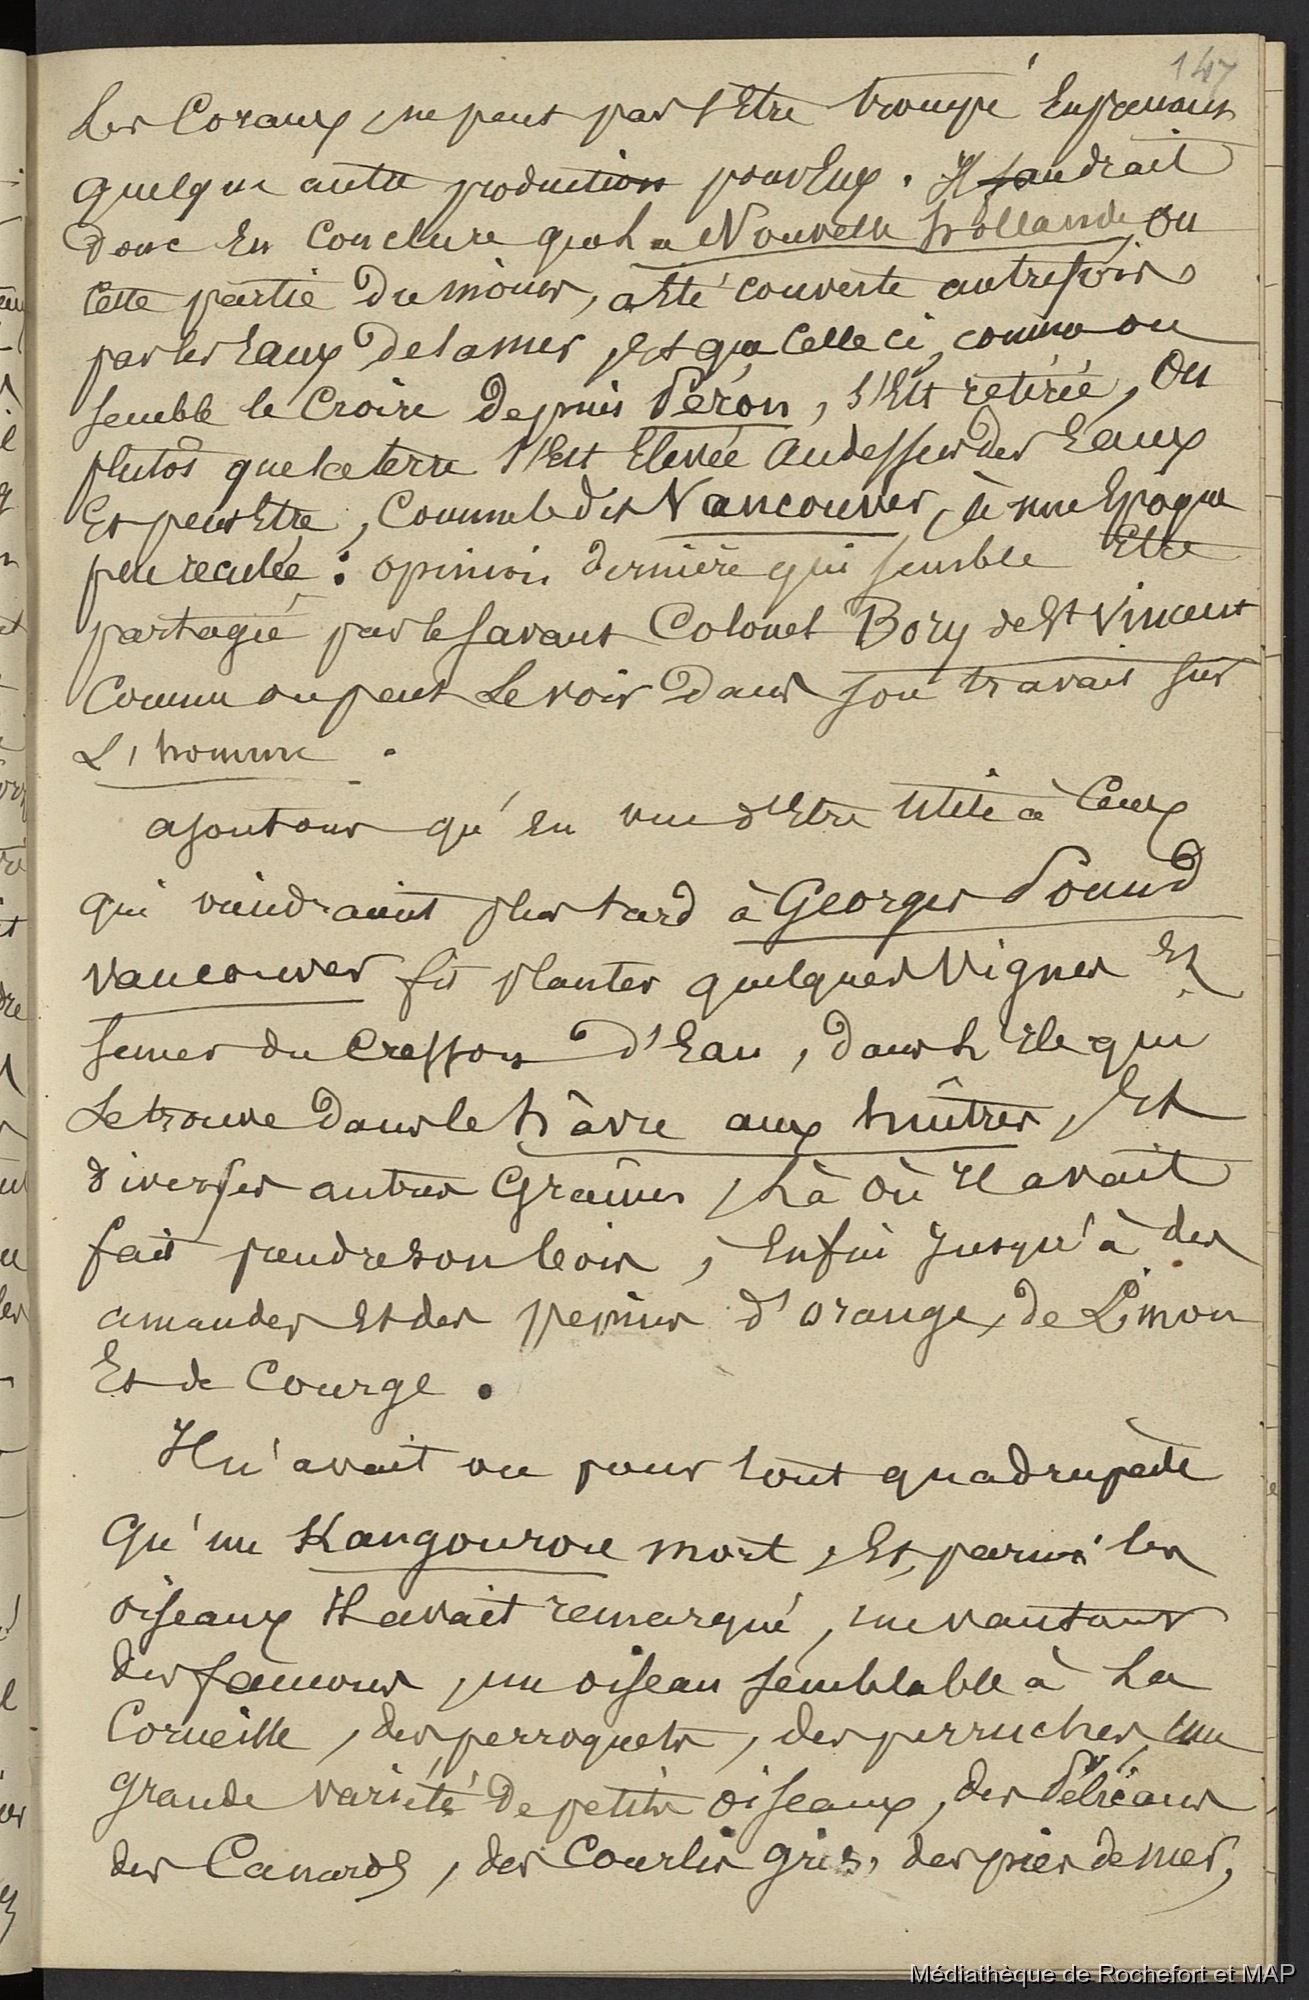 147
les Coraux, ne peut pas s'Etre trompé En prenant
quelque autre production pour Eux. Il faudrait
donc En Conclure que la Nouvelle hollande ou
cette partie du moins, a Eté couverte autrefois
par les Eaux de la mer, Et que Celle ci, comme on
semble le Croire depuis Péron, s'Est retirée, ou
plutôt que la terre s'Est Elevée au dessus des Eaux
Et peut Etre, Comme le dit Vancouver, à une Epoque
peu reculée : opinion dernière qui semble Etre
partagée par le savant Colonel Bory de St Vincent
Comme on peut le voir dans son travail sur
L'homme.
ajoutons qu'En vue d'Etre utile à Ceux
qui viendraient plus tard à Georges Sound
Vancouver fit planter quelques Vignes Et
semer du Cresson d'Eau, dans l'Ile qui
se trouve dans le hâvre aux huîtres, Et
diverses autres Graines, là où Il avait
fait prendre son bois, Enfin jusqu'à des
amandes Et des pepins d'orange, de Limon
Et de Courge.
Il n'avait vu pour tout quadrupède
Qu'un Kangourou mort, Et, parmi les
oiseaux Il avait remarqué, un vautour
des faucons, un oiseau semblable à la
Corneille, des perroquets, des perruches, une
grande variété de petits oiseaux, des Pélicans
des Canards, des Courlis gris, des pies de mer,
Médiathèque de Rochefort et MAP